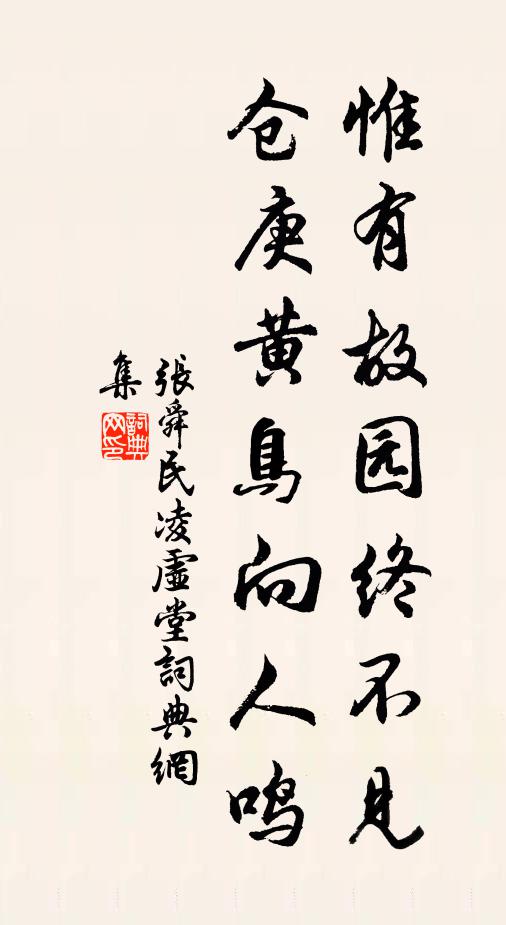 惟有故园终不见
仓庚黄鳥向人鸣
張舜民凌虛堂詞典網
集
詞典网印